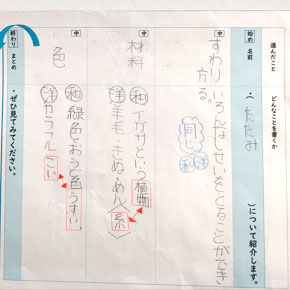 選んだこと
どんなことを書くか
始め 名前
( たたみ )について紹介します。
中
すわり
方
いろんなしせいをとることができ
る。
同じ
和 洋
中
材料
和 イグサという植物
洋 羊毛・きぬ・めん 糸
中
色
和 緑色とおうど色 うすい
洋 カラフル こい
終わり まとめ
・ぜひ見てみてください。